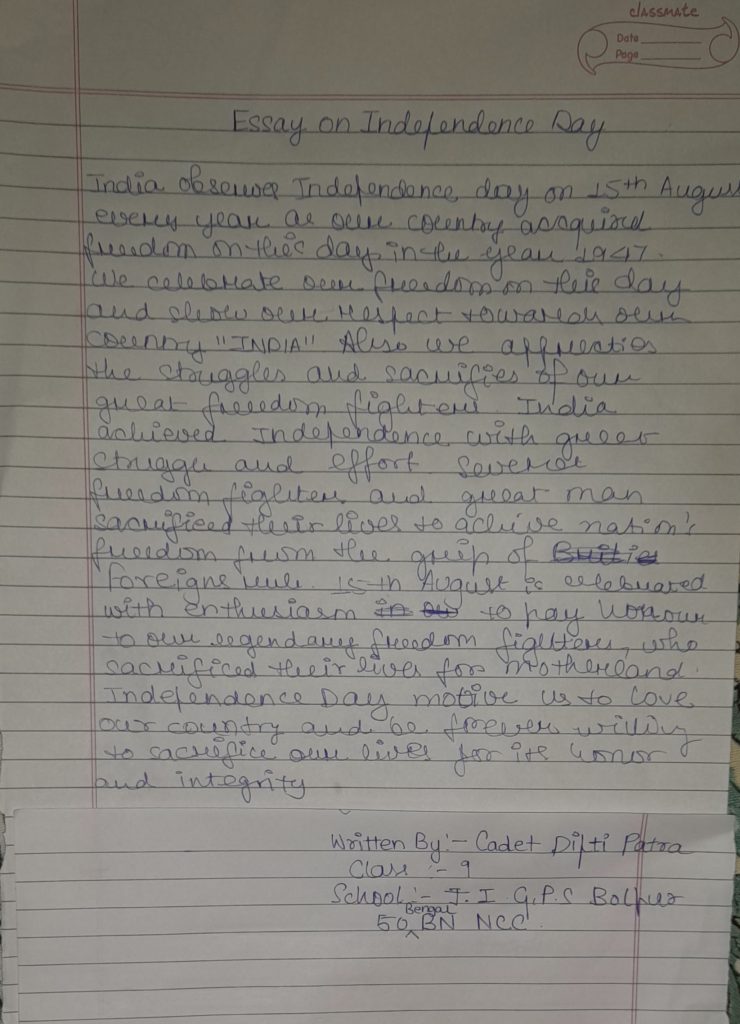 classmate
Date
Page
Essay on Independence Day
India observes Independence day on 15th August
every year as our country acquired
freedom on this day, in the year 1947.
We celebrate our freedom on this day
and show our respect towards our
country "INDIA" Also we
the struggles and sacrifies of our
great freedom fighters. India
achieved Independence with great
struggle and effort. Several
freedom fighters and great man
sacrificed their lives to achive nation's
freedom from the grip of
foreigns rule. 15th August is celebrated
with enthusiasm to pay honour
to our legendary freedom fighters, who
sacrificed their lives for motherland.
Independence Day motive us to love
our country and be forever willing
to sacrifice our lives for its honor
and integrity
Written By:- Cadet Dipti Patra
Class :- 9
School:- J. I. G.P.S Bolpur
50 Bengal BN NCC.